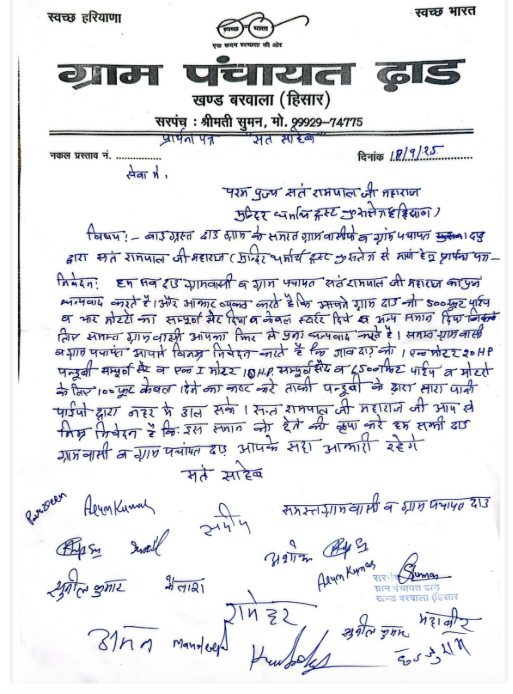 स्वच्छ हरियाणा
स्वच्छ भारत
स्वच्छ भारत
एक कदम स्वच्छता की ओर
ग्राम पंचायत ढ़ाड
खण्ड बरवाला (हिसार)
सरपंच : श्रीमती सुमन, मो. 99929-74775
प्रार्थना पत्र "सत साहेब"
नकल प्रस्ताव नं. ..............
दिनांक 18/9/25
सेवा में,
परम पुज्य संत रामपाल जी महाराज
विषय :- बाढ़ ग्रस्त ढाड ग्राम के समस्त ग्रामवासी व ग्राम पंचायत
द्वारा संत रामपाल जी महाराज से मांगे हेतु प्रार्थना पत्र-
निवेदन: हम सब ढाड़ ग्रामवासी व ग्राम पंचायत संत रामपाल जी महाराज का पुनः
धन्यवाद करते है। और आभार व्यक्त करते है कि आपने ग्राम ढाड को 500 फुट पाईप
व चार मोटरों का सम्पूर्ण सैट दिया व केबल स्टार्टर दिये व अन्य समान दिया जिसके
लिए समस्त ग्रामवासी आपका फिर से पुनः धन्यवाद करते है। समस्त ग्रामवासी
व ग्राम पंचायत आपसे विनम्र निवेदन करते है कि गांव ढाड़ को 1 एक मोटर 20 HP
पन्डूबी सम्पूर्ण सैट व एक 1 मोटर 10 HP सम्पूर्ण सैट व 6500 फिट पाईप व मोटरो
के लिए 100 फुट केबल देने का कष्ट करे ताकी पन्डूबी के द्वारा सारा पानी
पाईपो द्वारा नहर में डाल सके। संत रामपाल जी महाराज जी आप से
निवेदन है कि इस समान को देने की कृपा करे हम सभी ढाड
ग्रामवासी व ग्राम पंचायत ढाड़ आपके सदा आभारी रहेगे
सत साहेब
Parveen
Arun Kumar
समस्त ग्रामवासी व ग्राम पंचायत ढाड
संदीप
Sunil
अशोक
Arun Kumar
Suman
सुनील कुमार
सरपंच
ग्राम पंचायत ढाड
खण्ड बरवाला (हिसार)
रामेहर
सुनील कुमार
महावीर